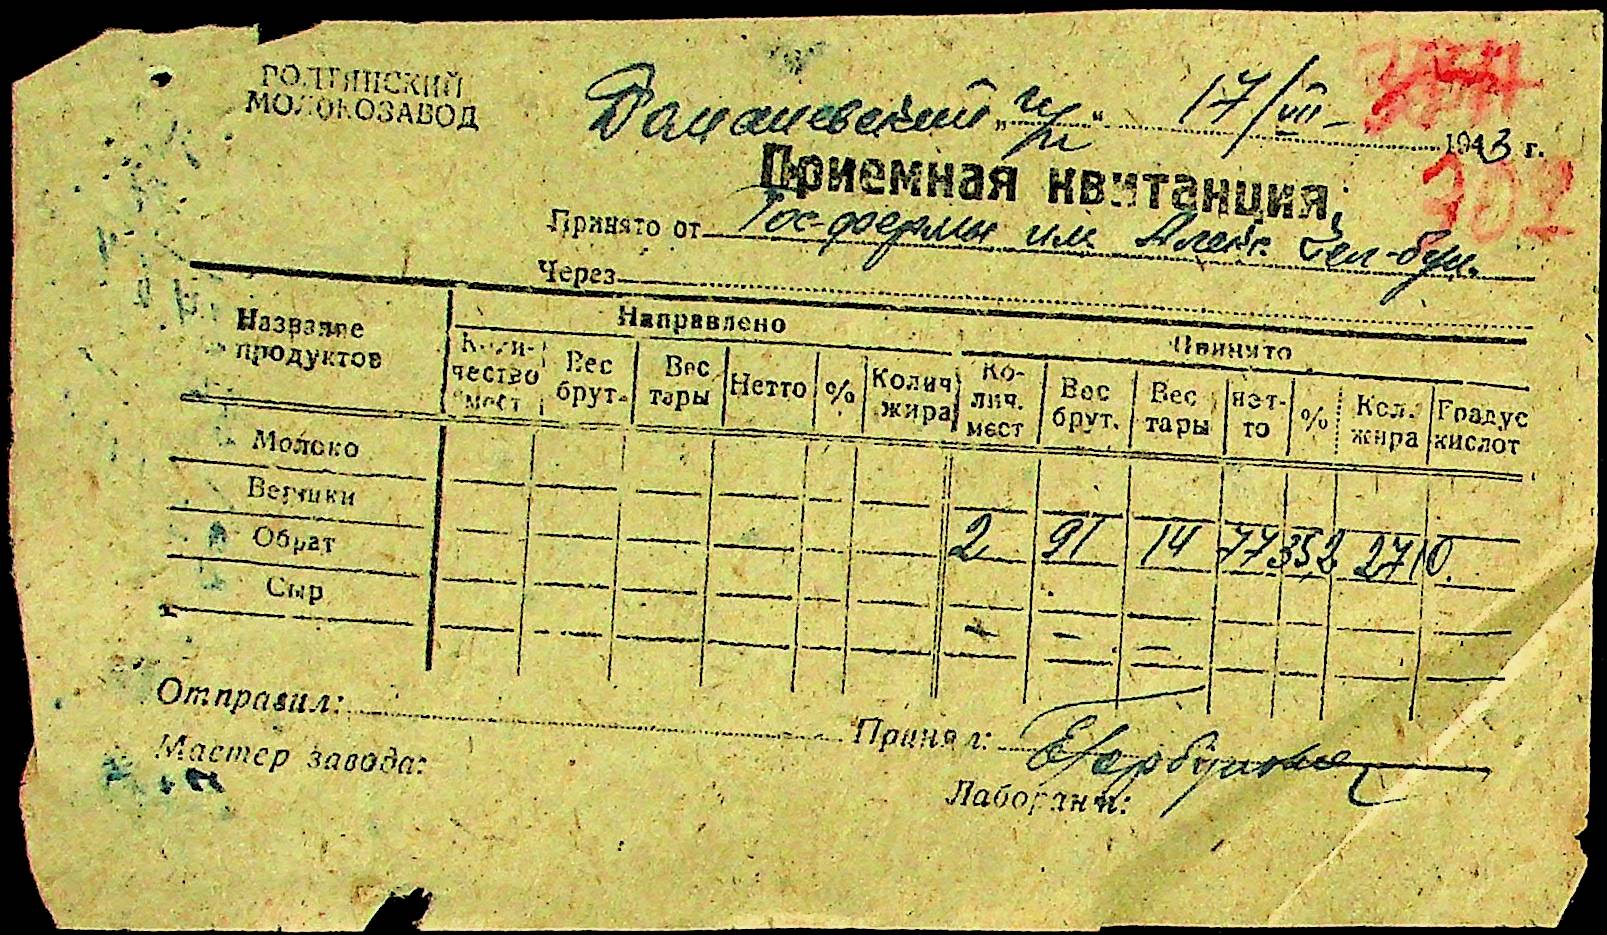 ГОЛТЯНСКИЙ
МОЛОКОЗАВОД
Доманевский „ " 17/VII- 1943 г.
Приемная квитанция
Принято от Гос-фермы им Алекс.
Через
Название продуктов
Направлено
Принято
Коли-чество мест
Вес брут.
Вес тары
Нетто
%
Колич жира
Ко-лич. мест
Вес брут.
Вес тары
нет-то
%
Кол. жира
Градус кислот
Молоко
Вершки
Обрат 2 91 14 77 352 2710
Сыр
Отправил:
Принял:
Мастер завода:
Лаборант: